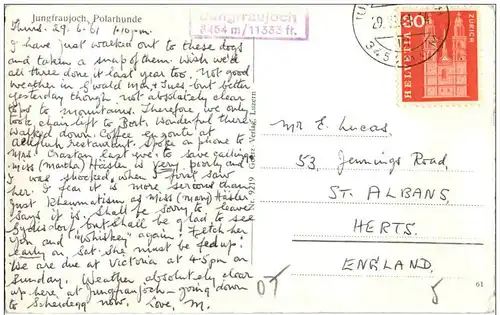 Jungfraujoch, Polarhunde
Thurs. 29.6.61 1.10 pm.
I have just walked out to these dogs
and taken a snap of them. Wish we'd
all three done it last year too. Not good
weather in G'wald Mon + Tues but better
yesterday though not absolutely clear
tops to mountains. Therefore we only
took chair lift to Bort. Wonderful there
Walked down. Coffee en route at
restaurant. Spoke on phone to
Mrs. last eve. to save calling.
Miss (Martha) Häsler is very poorly and
I was shocked, when I first saw
her. I fear it is more serious than
just Rheumatism as Miss (Mary) Häsler
says it is. Shall be sorry to leave
but shall be glad to see
you and "Whiskey" again. Fetch her
early on Sat. She must be fed up!
We are due at Victoria at 4.5 pm on
Sunday. Weather absolutely clear
up here at Jungfraujoch - going down
to Scheidegg now. Love, M.
Jungfraujoch
3454 m/11333 ft.
Nr. 9219 Verlag, Luzern
29.
3454
HELVETIA
30
ZÜRICH
Mr E. Lucas,
53, Jennings Road,
ST. ALBANS,
HERTS.
ENGLAND.
61